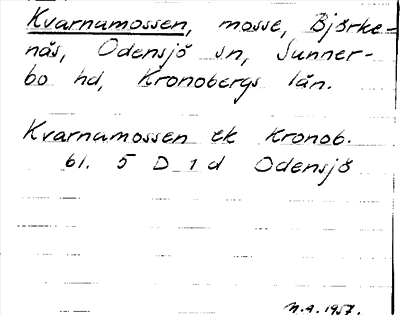 Kvarnamossen, mosse, Björke-
näs, Odensjö sn, Sunner-
bo hd, Kronobergs län.
Kvarnamossen ek Kronob.
bl. 5 D 1 d Odensjö
N.A. 1957.